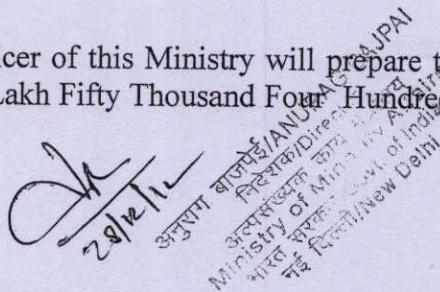 cer of this Ministry will prepare t
Lakh Fifty Thousand Four Hundre
28/12/12
अनुराग बाजपेई/ANURAG BAJPAI
निदेशक/Director
अल्पसंख्यक कार्य मंत्रालय
Ministry of Minority Affairs
भारत सरकार/Govt. of India
नई दिल्ली/New Delhi